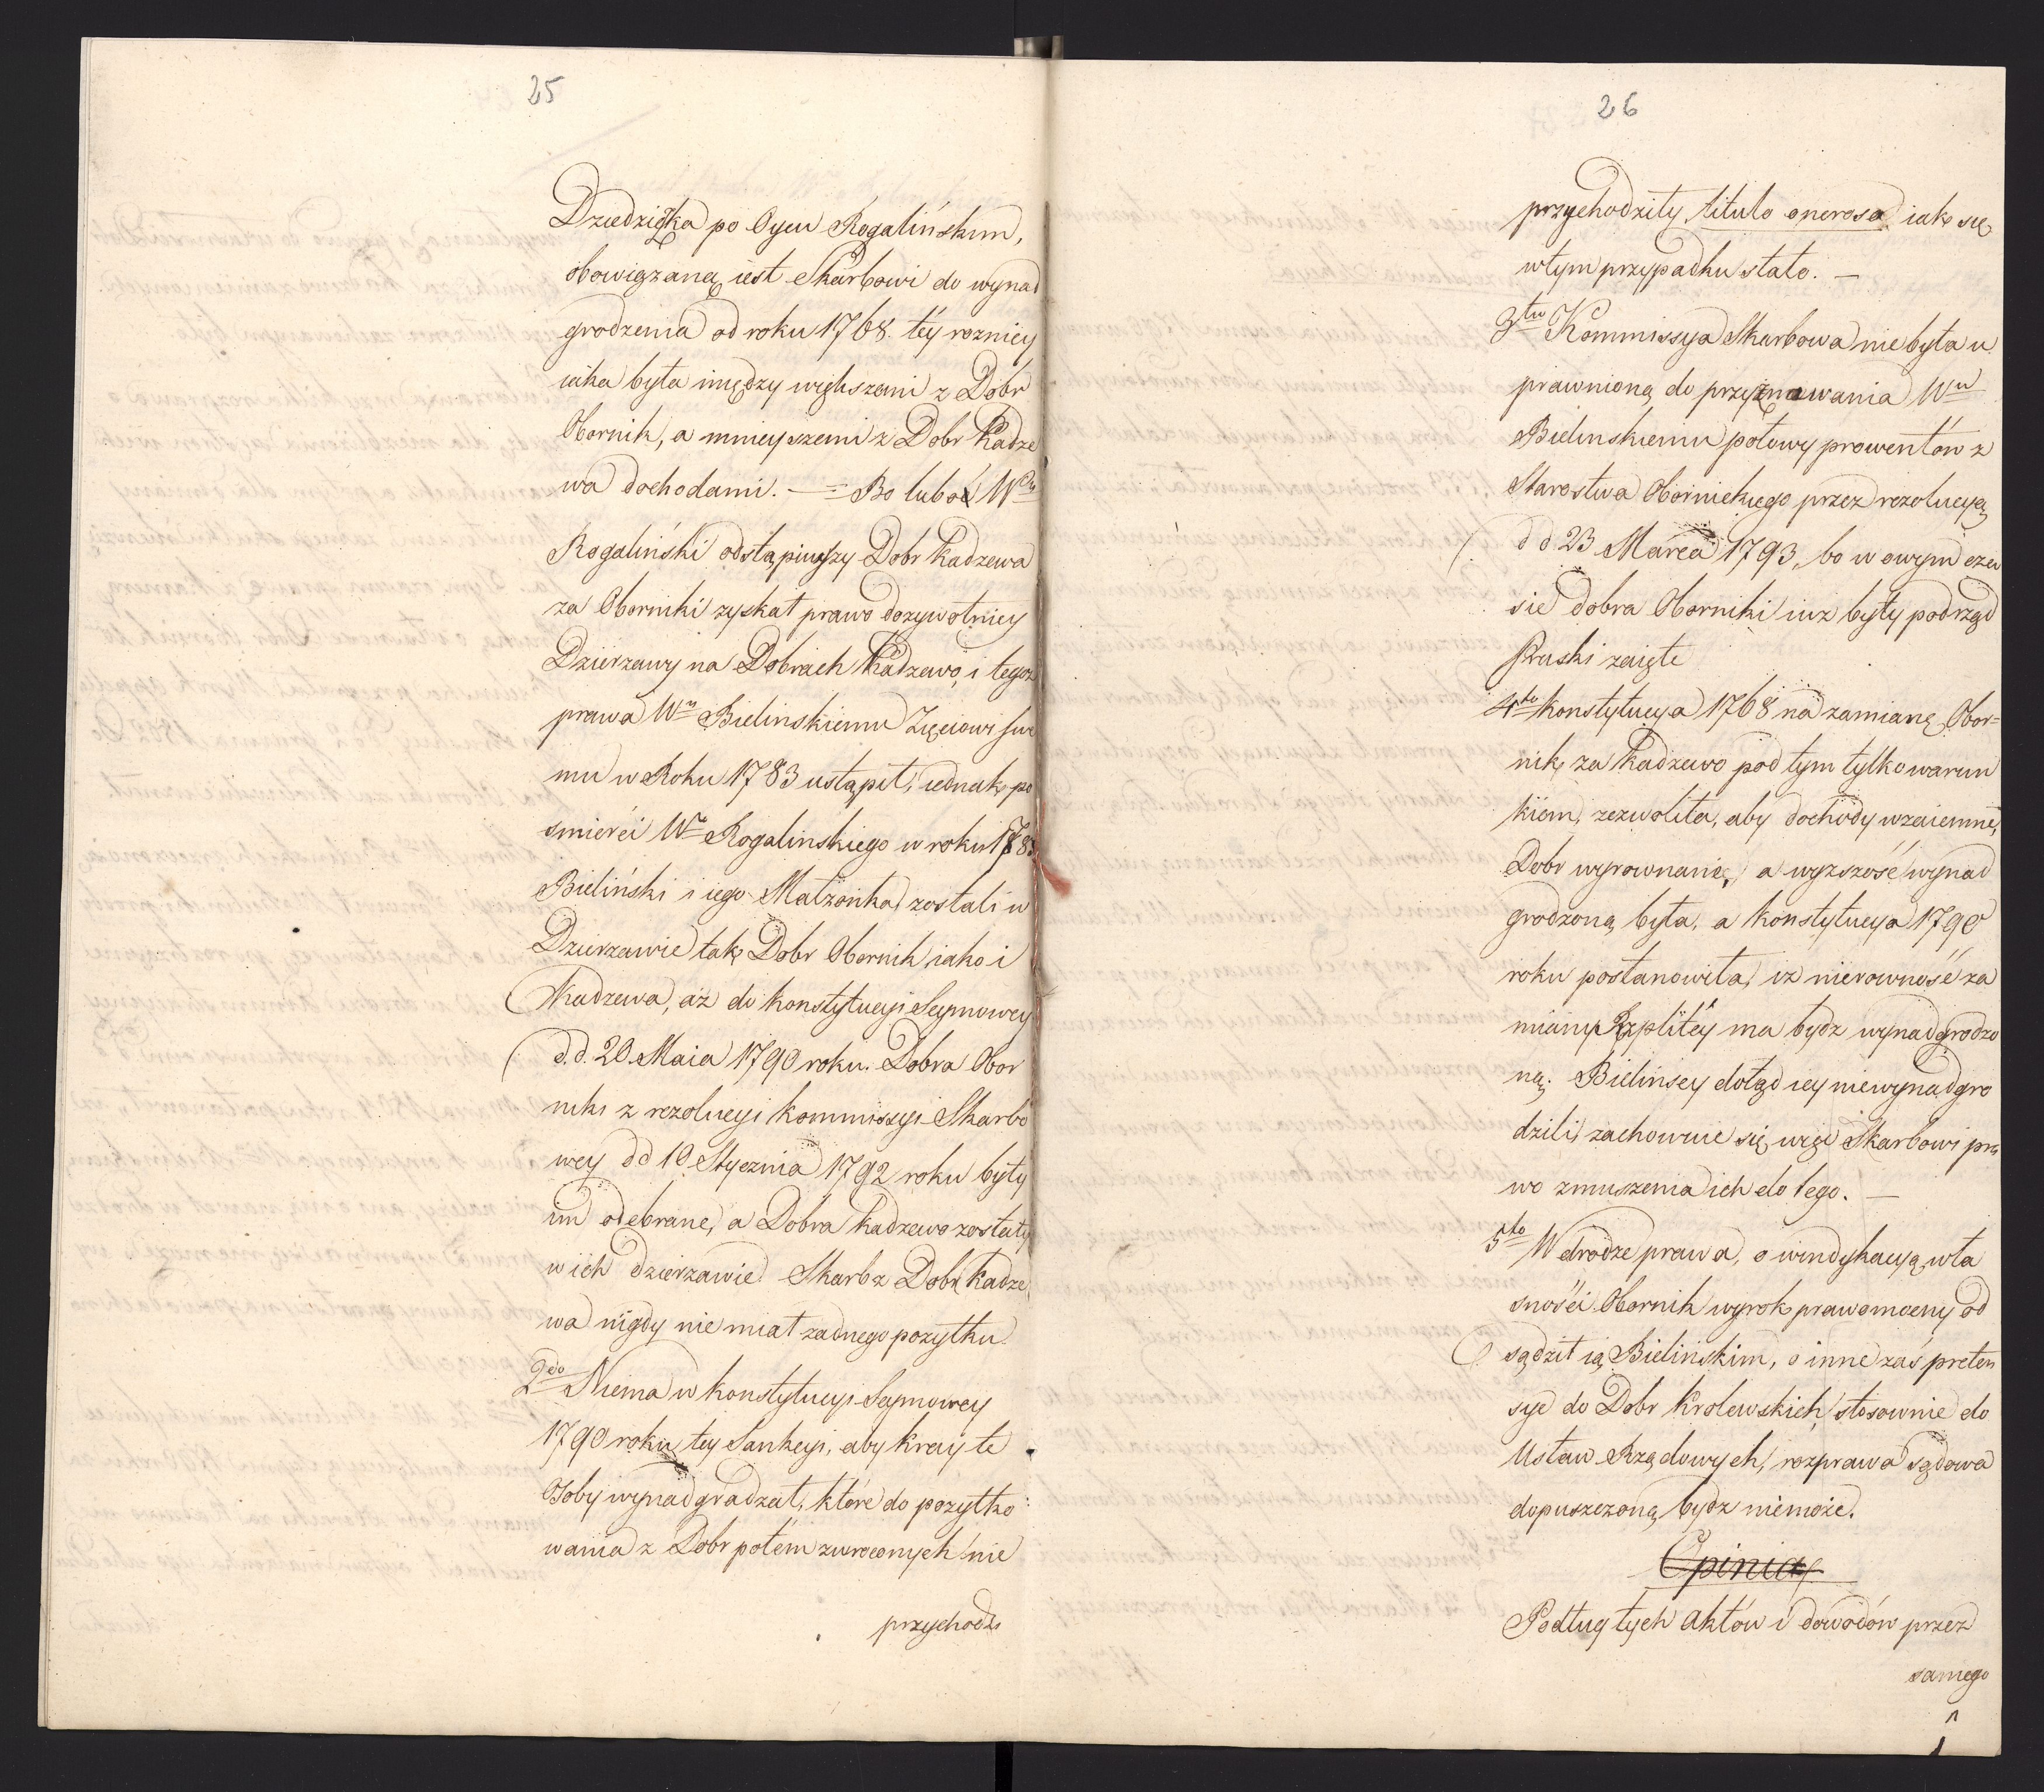 25
Dziedziczka po Oycu Rogalińskim,
obowiązaną iest Skarbowi do wynad
grodzenia od roku 1768. téy roznicy
iaka była między większemi z Dobr
Obornik, a mnieyszemi z Dobr Kadze
wa dochodami. — Bo luboć Wny
Rogaliński odstąpiwszy Dobr Kadzewa
za Oborniki zyskał prawo dozywotniey
Dzierzawy na Dobrach Kadzewo, i tegoz
prawa Wu Bielinskiemu Zięciowi swe
mu w Roku 1783 ustąpił, iednak po
smierci Wo Rogalinskiego w roku 178
Bieliński i iego Małzonka zostali w
Dzierzawie tak Dobr Obornik iako i
Kadzewa, aż do konstytucyi Seymowey
d.d. 20 Maia 1790 roku. Dobra Obor
niki z rezolucyi kommissyi Skarbo
wey dd 10 Stycznia 1792 roku były
im odebrane, a Dobra Kadzewo zostały
w ich dzierzawie. Skarb z Dobr Kadze
wa nigdy nie miał zadnego pozytku.
2do Niema w konstytucyi Seymowey
1790 roku tey Sankcyi, aby kray te
Osoby wynadgradzał, które do pozytko
wania z Dobr potém zwroconych nie
przychodzi
26
przychodziły titulo oneroso iako się
w tym przypadku stało. —
3tio Kommissya Skarbowa nie była u
prawnioną do przyznawania Wu
Bielinskiemu połowy prowentów z
Starostwa Obornickiego przez rezolucyą
d d 23 Marca 1793, bo w owym cza
sie dobra Oborniki iuz były pod rząd
Pruski zaięte
4to Konstytucya 1768 na zamianę Obor=
nik za Kadzewo pod tym tylko warun
kiem, zezwoliła, aby dochody wzaiemnie
Dobr wyrownanie, a wyzszość wynad
grodzoną była, a konstytucya 1790
roku postanowiła, iz nierowność za
miany Rzplitéy ma bydz wynadgrodzo
ną. Bielinscy dotąd iey niewynadgro
dzili, zachowuie się więc Skarbowi pra
wo zmuszenia ich do tego. —
5to W drodze prawa, o windykacyą wła
sności Obornik wyrok prawomocny od
sądził ią Bielinskim, o inne zaś preten
sye do Dobr Krolewskich, stosownie do
Ustaw Rządowych, rozprawa sądowa
dopuszczoną bydz niemoże.
Opinia
Podług tych aktów i dowodów przez
samego